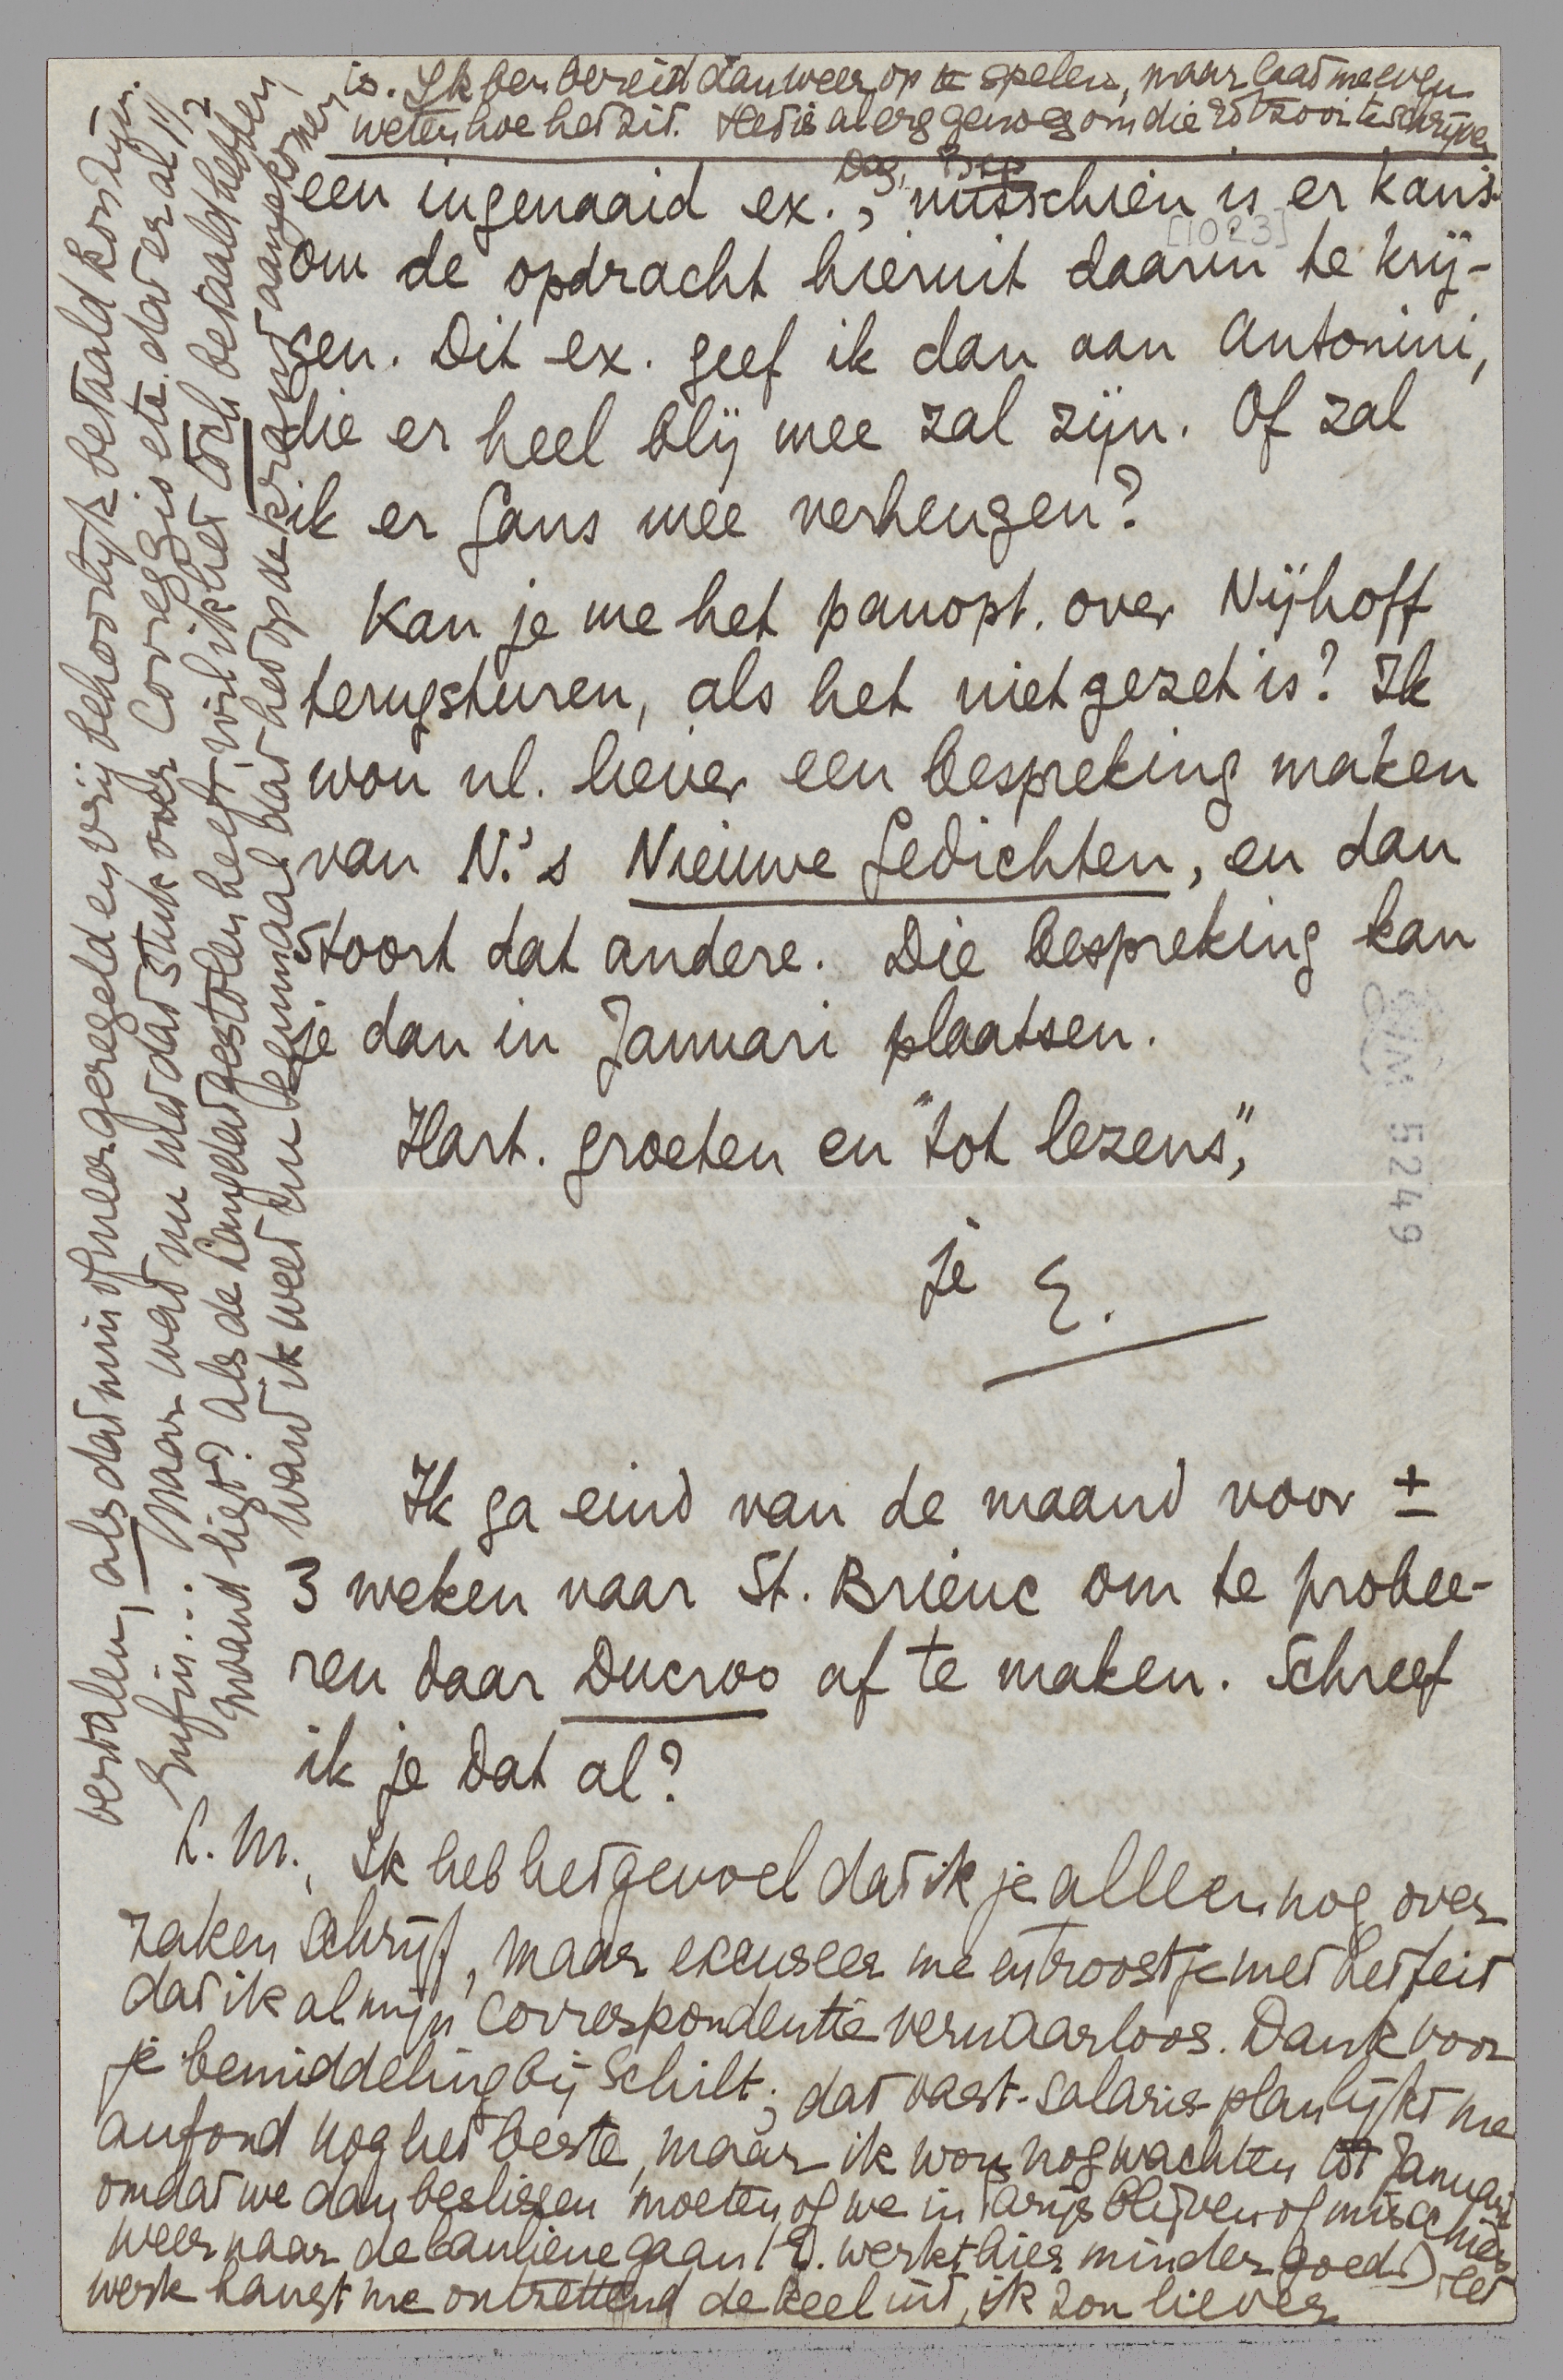 een ingenaaid ex., misschien is er kans
om de opdracht hieruit daarin te krij-
gen. Dit ex. geef ik dan aan Antonini,
die er heel blij mee zal zijn. Of zal
ik er Gans mee verheugen?
Kan je me het panopt. over Nijhoff
terugsturen, als het niet gezet is? Ik
wou nl. liever een bespreking maken
van N.'s Nieuwe Gedichten, en dan
stoort dat andere. Die bespreking kan
je dan in Januari plaatsen.
Hart. groeten en "tot lezens",
je E.
Ik ga eind van de maand voor ±
3 weken naar St. Brieuc om te probee-
ren daar Ducroo af te maken. Schreef
ik je dat al?
L.M., Ik heb het gevoel dat ik je alleen nog over
zaken schrijf, maar excuseer me en troost je met het feit
dat ik al mijn correspondentie verwaarloos. Dank voor
je bemiddeling bij Schilt; dat vast-salaris-plan lijkt me
au fond nog het beste, maar ik wou nog wachten tot Januari
omdat we dan beslissen moeten of we in Parijs blijven of misschien
weer naar de banlieue gaan (E. werkt hier minder goed.) Het
werk hangt me ontzettend de keel uit, ik zou liever
vertalen, als dat min of meer geregeld en vrij behoorlijk betaald kon zijn.
Enfin... Maar wat nu met dat stuk over Correggio etc. dat er al 1 1/2
maand ligt? Als de Langedat gestolen heeft, wil ik het tòch betaald hebben,
want ik weet nu eenmaal dat het op de krant aangekomen
is. Ik ben bereid dan weer op te spelen, maar laat me even
weten hoe het zit. Het is al erg genoeg om die rotzooi te schrijven
Dag, Bep
[1023]
5249